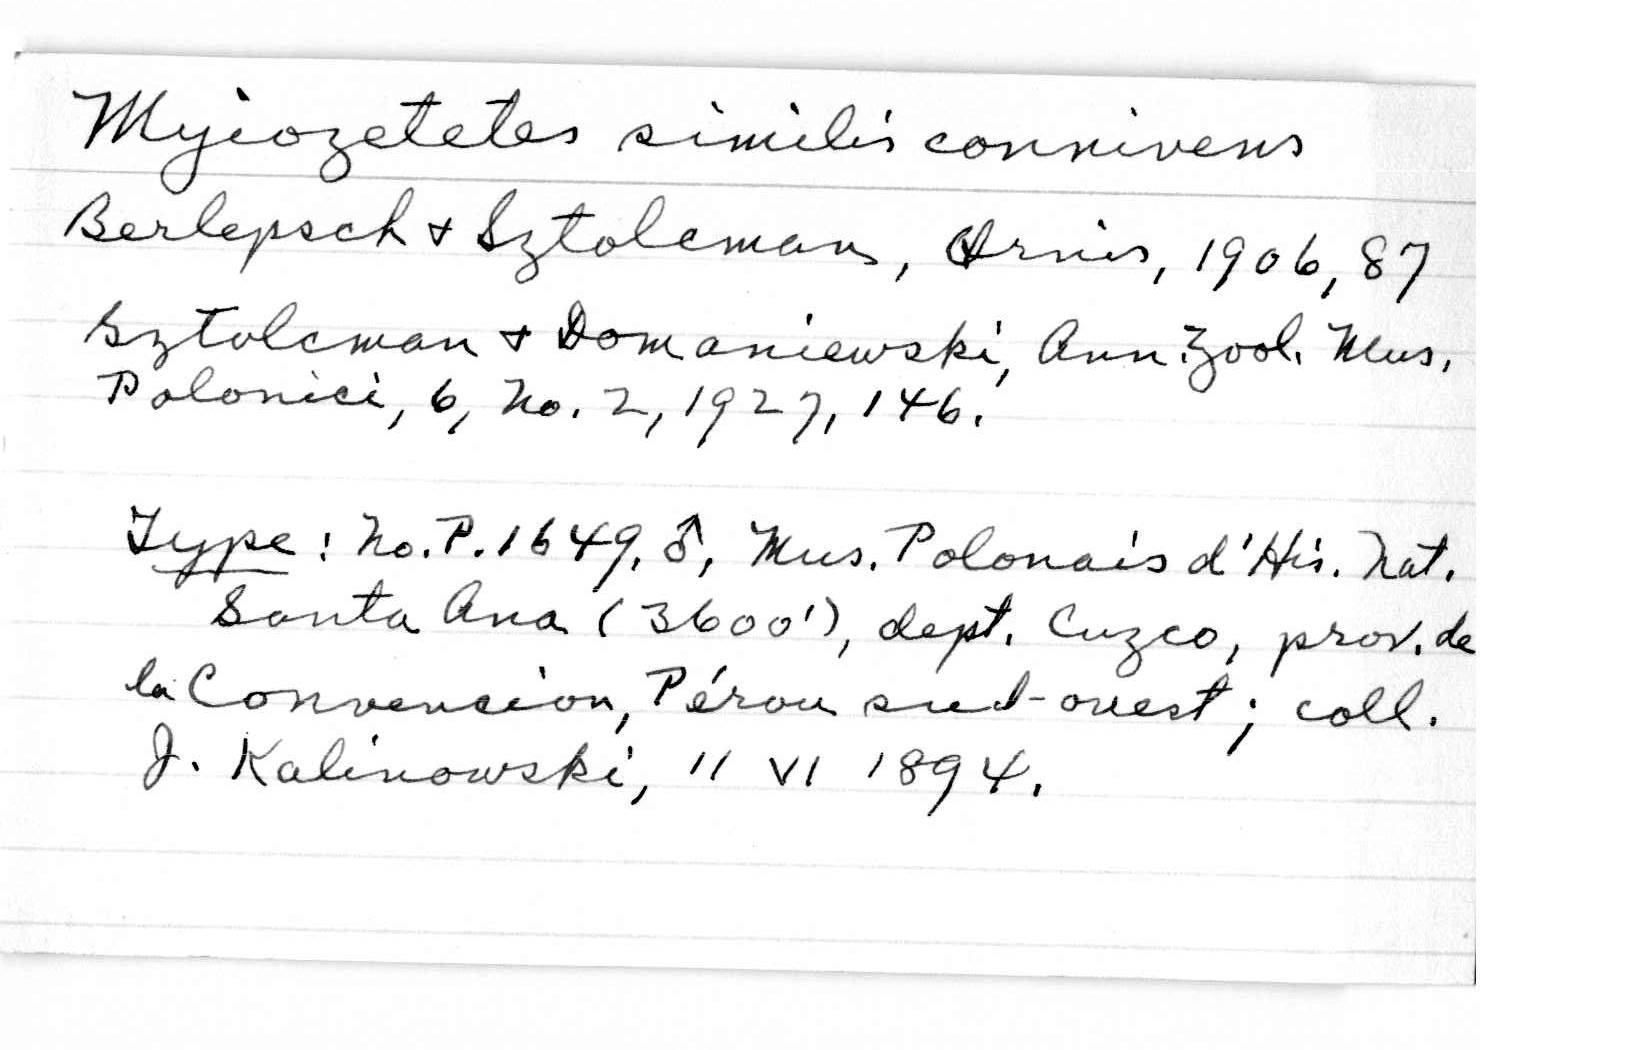 Myiozetetes similis connivens
Berlepsch & Sztolcman, Ornis, 1906, 87
Sztolcman & Domaniewski, Ann. Zool. Mus.
Polonici, 6, No. 2, 1927, 146.
Type: No. P. 1649, ♂, Mus. Polonais d'His. Nat.
Santa Ana (3600'), dept. Cuzco, prov. de
la Convencion, Pérou sud-ouest; coll.
J. Kalinowski, 11 VI 1894.